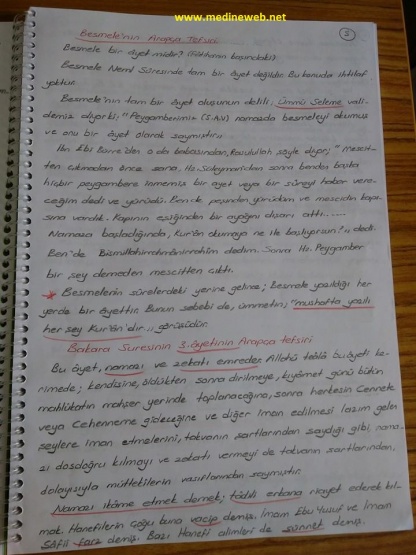 www.medineweb.net
5
Besmele'nin Arapça Tefsiri
Besmele bir âyet midir? (Fâtihanın başındaki)
Besmele Neml Sûresinde tam bir âyet değildir. Bu konuda ihtilaf
yoktur.
Besmele'nin tam bir âyet oluşunun delili; Ümmü Seleme vali-
demiz diyorki; "Peygamberimiz (S.A.V) namazda besmeleyi okumuş
ve onu bir âyet olarak saymıştır.
İbn Ebi Bürre'den o da babasından, Rasulullah şöyle diyor; "Mescit-
ten çıkmadan önce sana, Hz. Süleyman'dan sonra benden başka
hiçbir peygambere inmemiş bir ayet veya bir sûreyi haber vere-
ceğim dedi ve yürüdü. Ben'de peşinden yürüdüm ve mescidin kapı-
sına vardık. Kapının eşiğinden bir ayağını dışarı attı.....
Namaza başladığında, Kur'ân okumaya ne ile başlıyorsun?" dedi.
Ben'de Bismillahirrahmânirrahîm dedim. Sonra Hz. Peygamber
bir şey demeden mescitten çıktı.
* Besmelenin sûrelerdeki yerine gelince; Besmele yazıldığı her
yerde bir âyettir. Bunun sebebi de, ümmetin; "mushafta yazılı
her şey Kur'ân'dır." görüşüdür.
Bakara Suresinin 3. âyetinin Arapça tefsiri
Bu âyet, namazı ve zekatı emreder. Allahü teâlâ bu âyeti ke-
rimede; kendisine, öldükten sonra dirilmeye, kıyâmet günü bütün
mahlûkatın mahşer yerinde toplanacağına, sonra herkesin Cennete
veya Cehenneme gideceğine ve diğer iman edilmesi lazım gelen
şeylere iman etmelerini, takvanın şartlarından saydığı gibi, nama-
zı dosdoğru kılmayı ve zekatı vermeyi de takvanın şartlarından,
dolayısıyla müttekilerin vasıflarından saymıştır.
Namazı ikâme etmek demek; tâdili erkana riayet ederek kıl-
mak. Hanefilerin çoğu buna vacip demiş. İmam Ebu Yusuf ve İmam
Şâfii farz demiş. Bazı Hanefi alimleri de sünnet demiş.